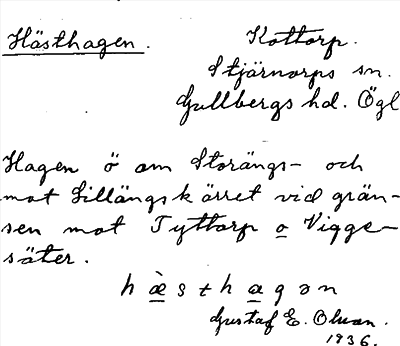 Hästhagen.
Kottorp.
Stjärnorps sn.
Gullbergs hd. Ögl
Hagen ö om Storängs- och
mot Lillängskärret vid grän-
sen mot Tyttorp o Vigge-
säter.
h æ̀ s t h a g ə n
Gustaf E. Olson.
1936.